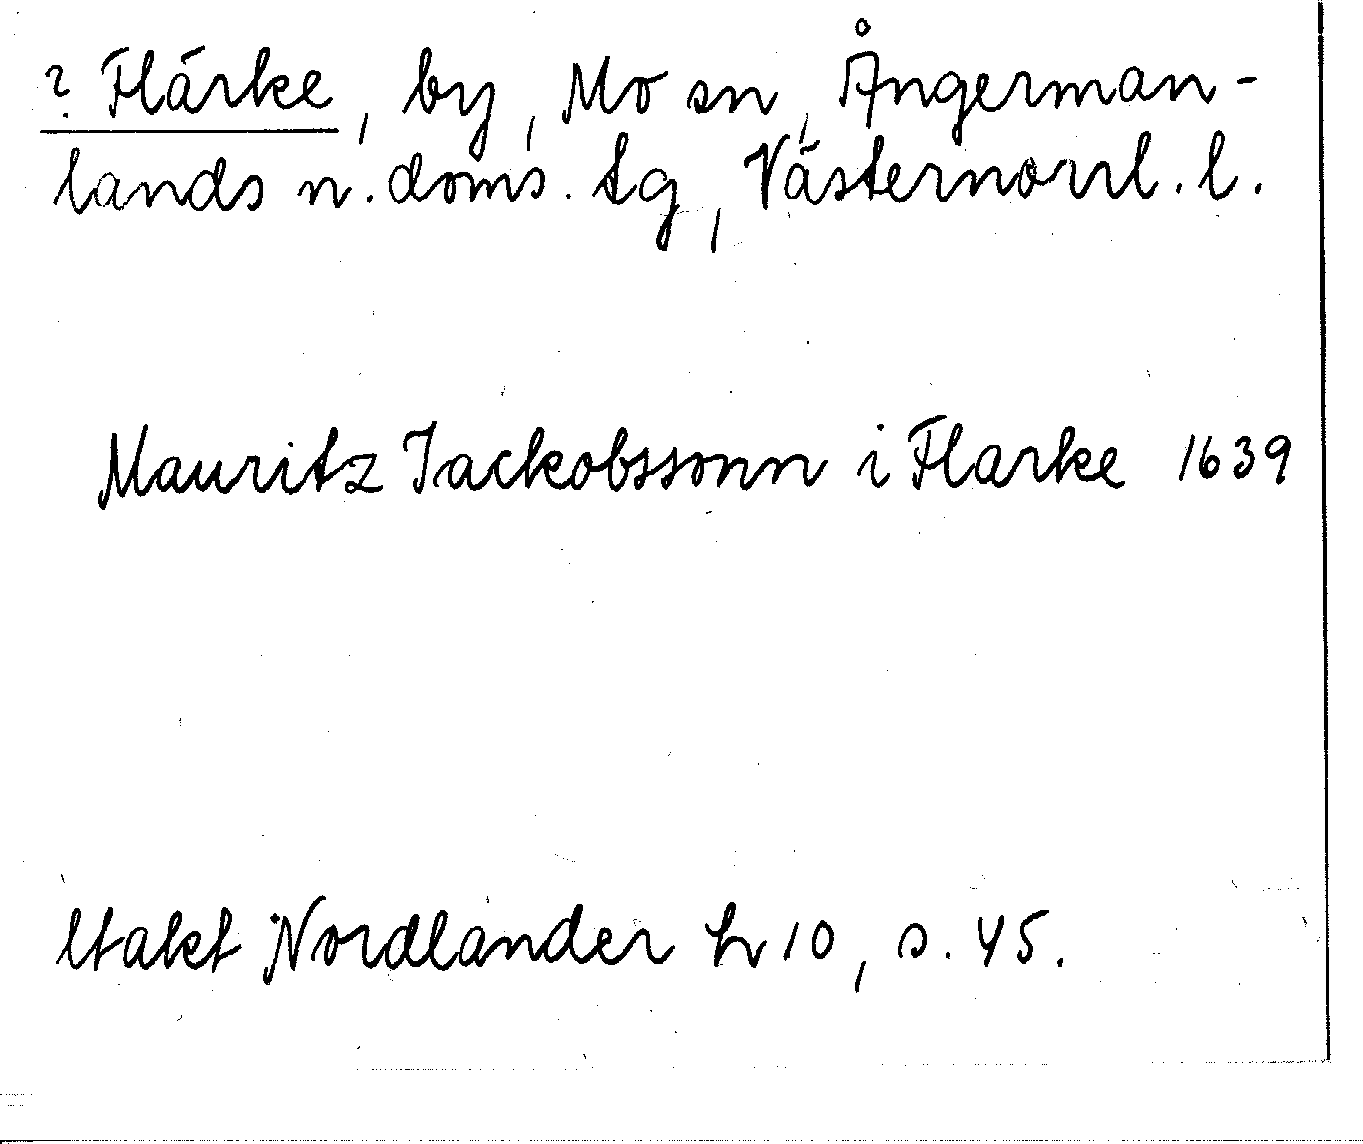 ? Flärke, by, Mo sn, Ångerman-
lands n. doms. tg, Västernorrl. l.
Mauritz Jackobssonn i Flarke 1639
Utakt Nordlander h 10, s. 45.